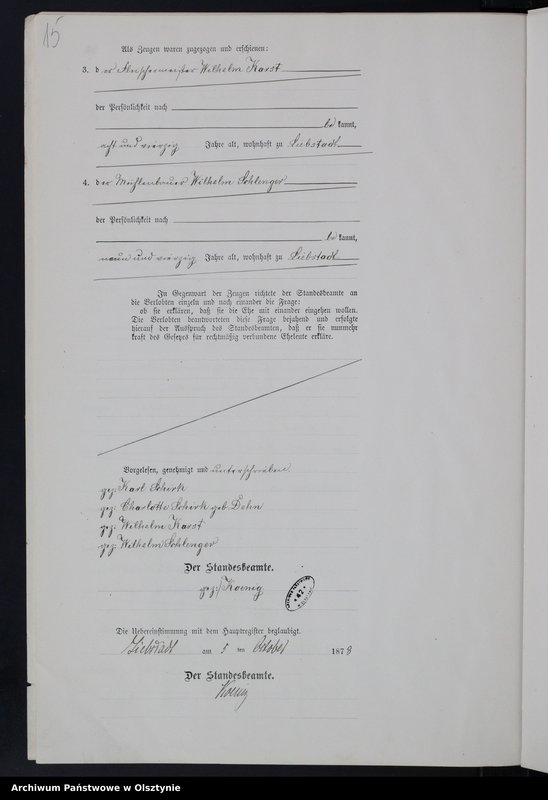 15
Als Zeugen waren zugezogen und erschienen:
3. der Fleischermeister Wilhelm Karst
der Persönlichkeit nach
bekannt,
acht und vierzig Jahre alt, wohnhaft zu Liebstadt
4. der Mühlenbauer Wilhelm Schlenger
der Persönlichkeit nach
bekannt,
neun und vierzig Jahre alt, wohnhaft zu Liebstadt
In Gegenwart der Zeugen richtete der Standesbeamte an
die Verlobten einzeln und nach einander die Frage:
ob sie erklären, daß sie die Ehe mit einander eingehen wollen.
Die Verlobten beantworteten diese Frage bejahend und erfolgte
hierauf der Ausspruch des Standesbeamten, daß er sie nunmehr
kraft des Gesetzes für rechtmäßig verbundene Eheleute erkläre.
Vorgelesen, genehmigt und unterschrieben
gez: Karl Schirk
gez: Charlotte Schirk geb. Dohn
gez: Wilhelm Karst
gez: Wilhelm Schlenger
Der Standesbeamte.
gez: Koenig
42
Die Uebereinstimmung mit dem Hauptregister beglaubigt.
Liebstadt am 5 ten October 1878
Der Standesbeamte.
Koenig
Archiwum Państwowe w Olsztynie